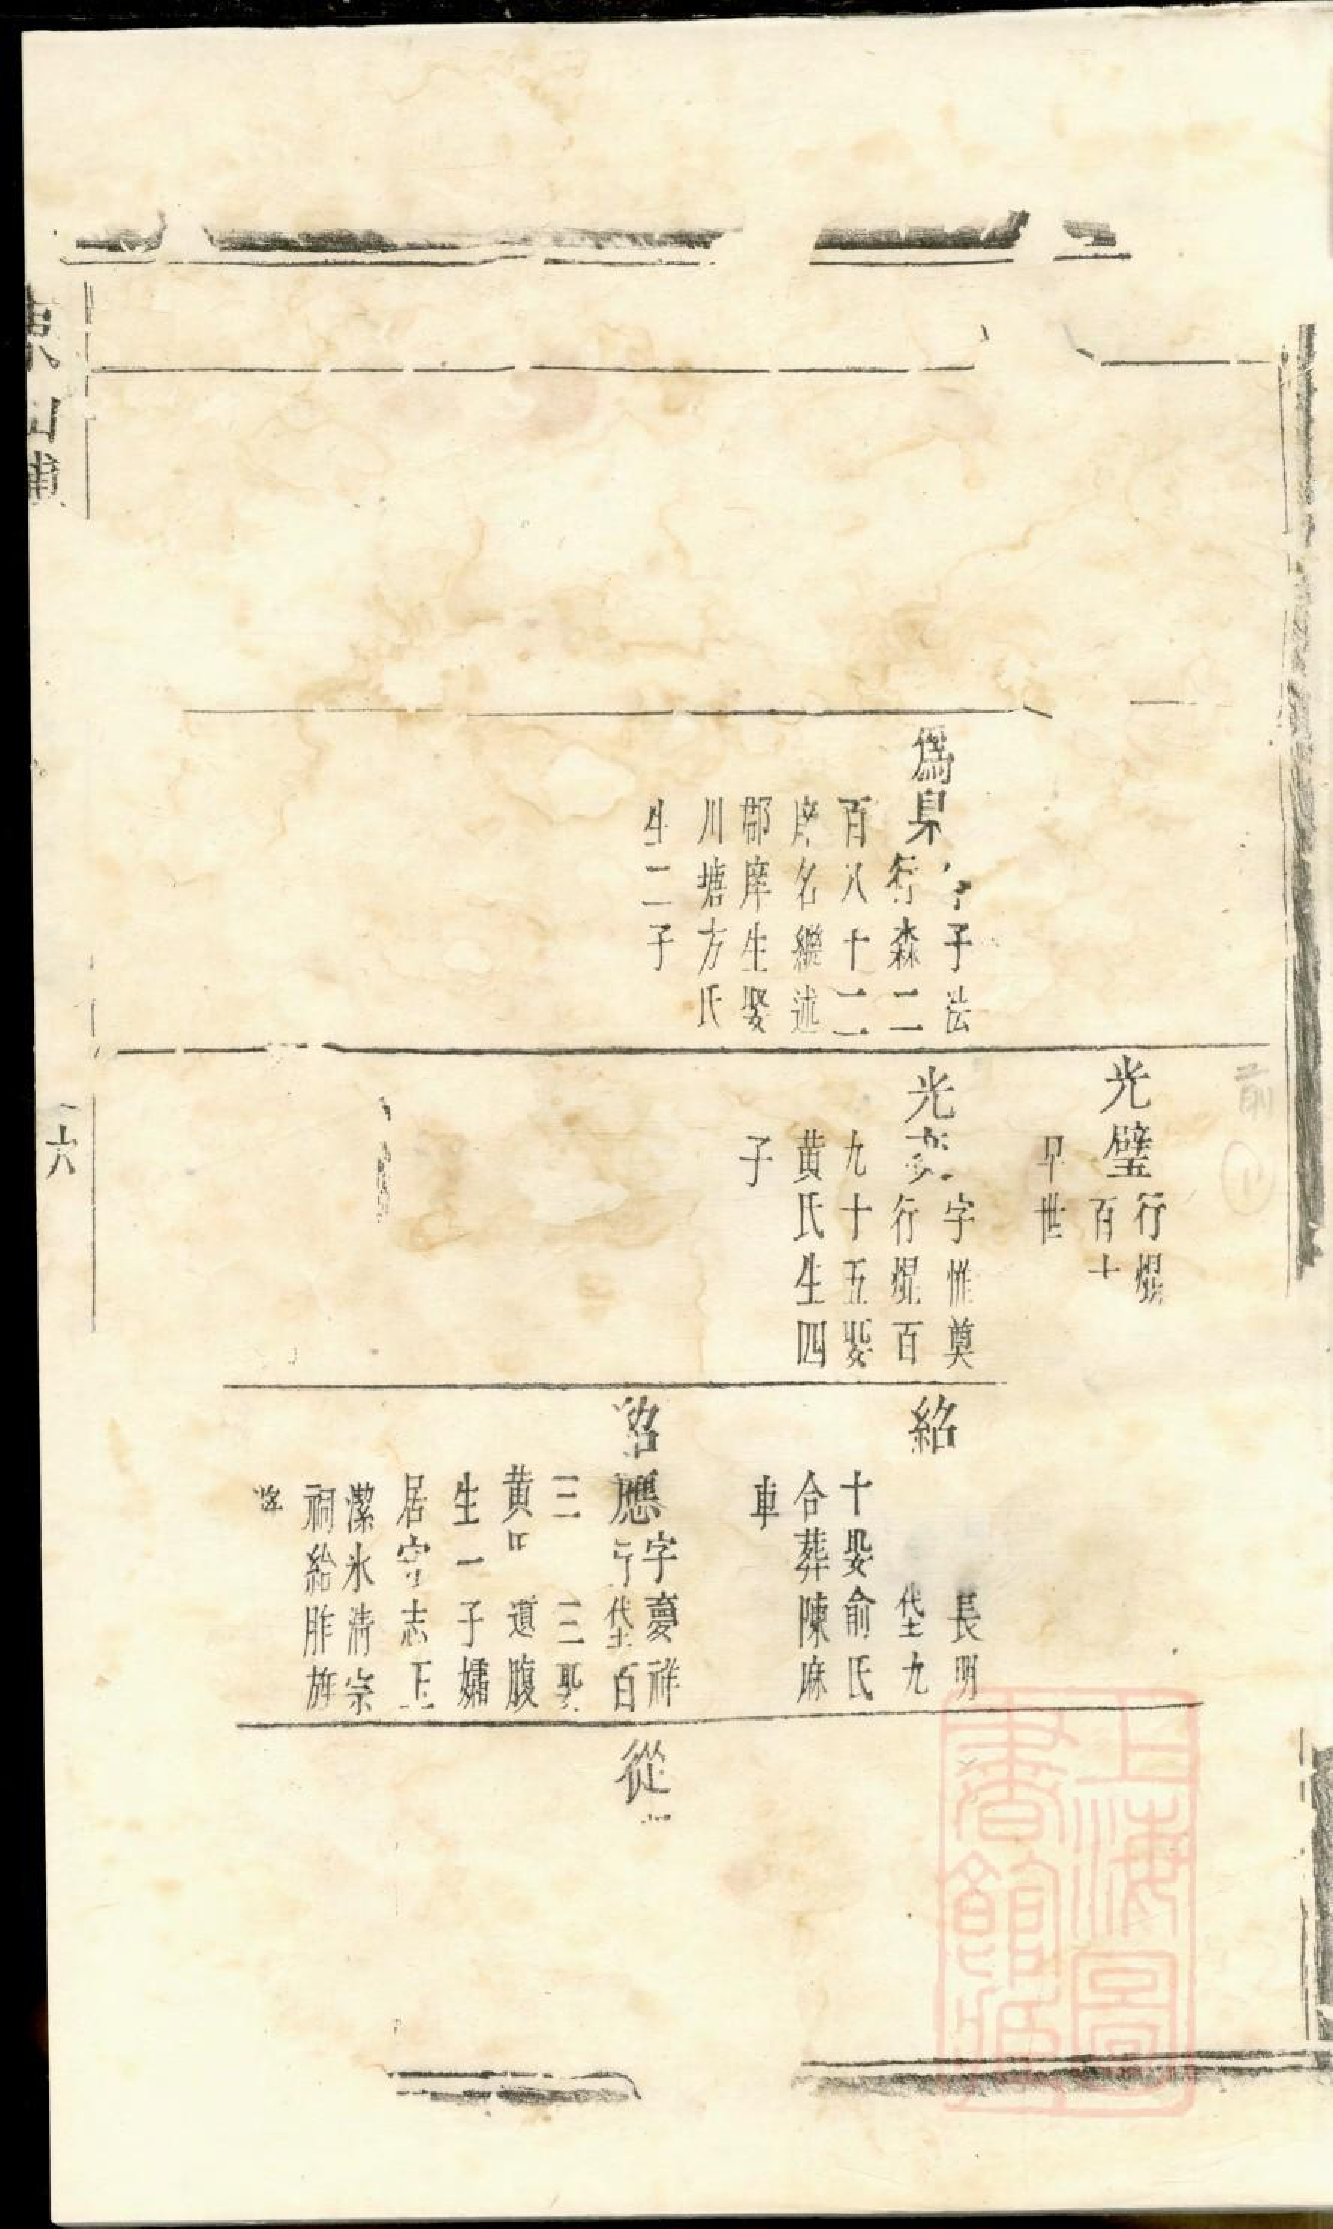 為臬
字子法
行森二
百八十二
庠名繼述
郡庠生娶
川塘方氏
生二子
光璧
行焜
百十
早世
光
字惟奠
行焜百
九十五娶
黄氏生四
子
紹
長明
垡九
十娶俞氏
合葬陳麻
車
紹應
字夢祥
行垡百
三 三娶
黄氏 遺腹
生一子孀
居守志玉
潔氷清宗
祠給胙旌
奬
從
東山譜
六
前
上海圖
書館藏